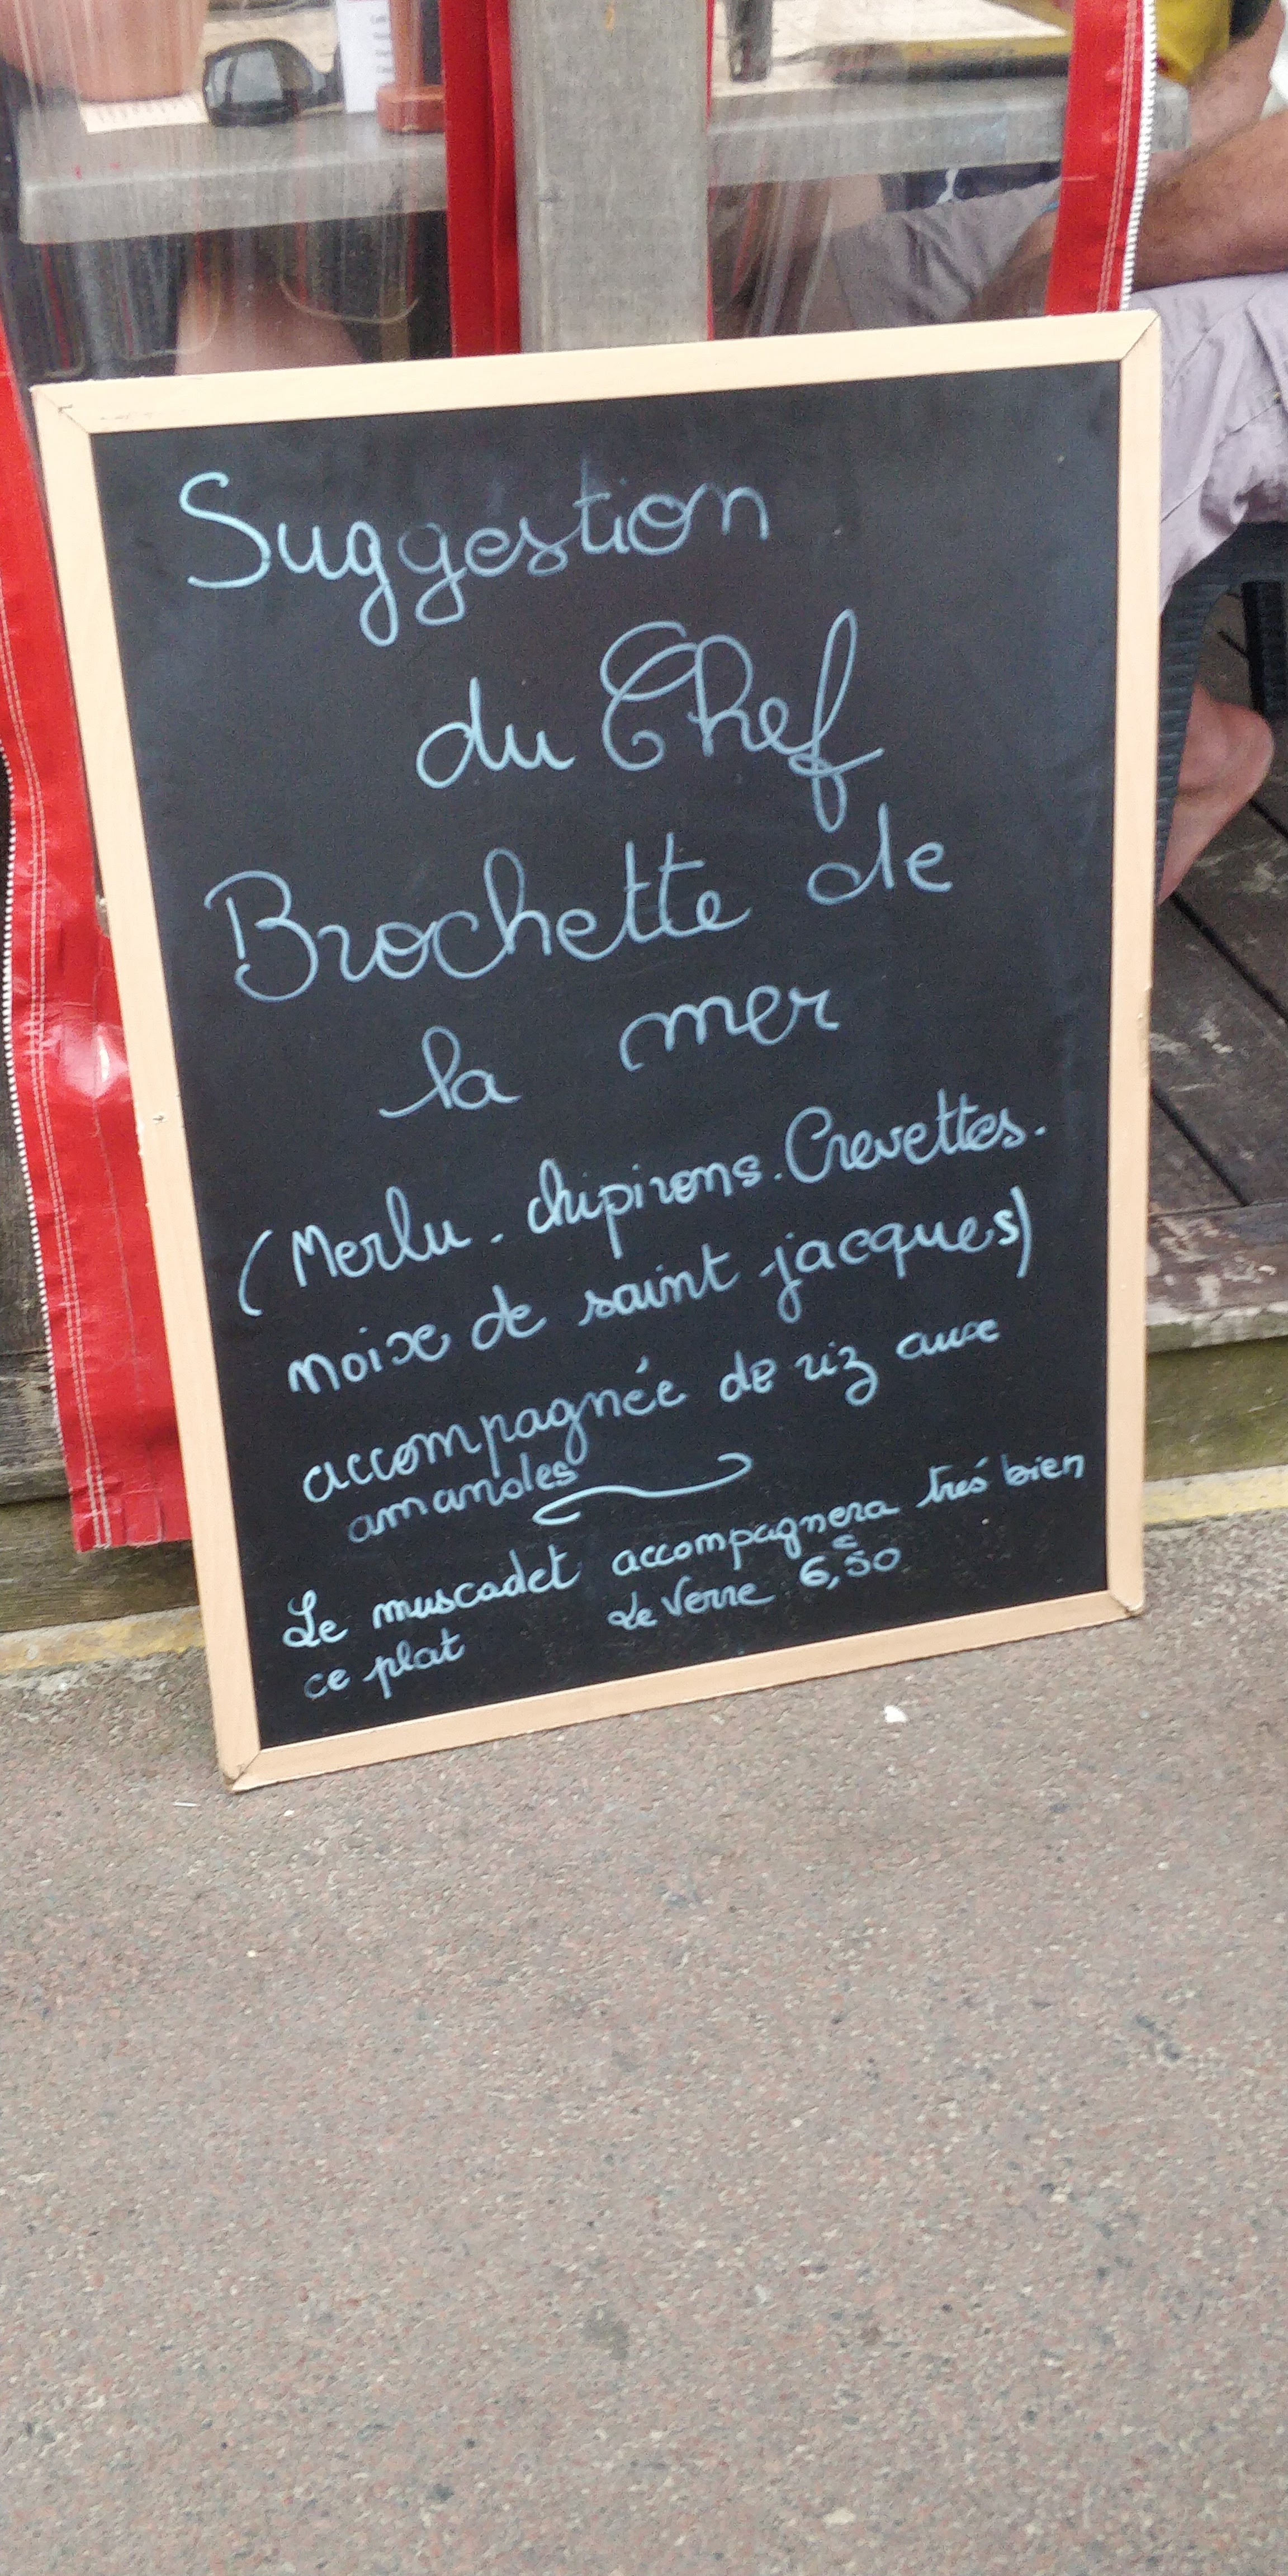 Suggestion
du Chef
Brochette de
la mer
(Merlu. chipirons. Crevettes.
noix de saint jacques)
accompagnée de riz aux
amandes
Le muscadet accompagnera trés bien
ce plat Le Verre 6,€50